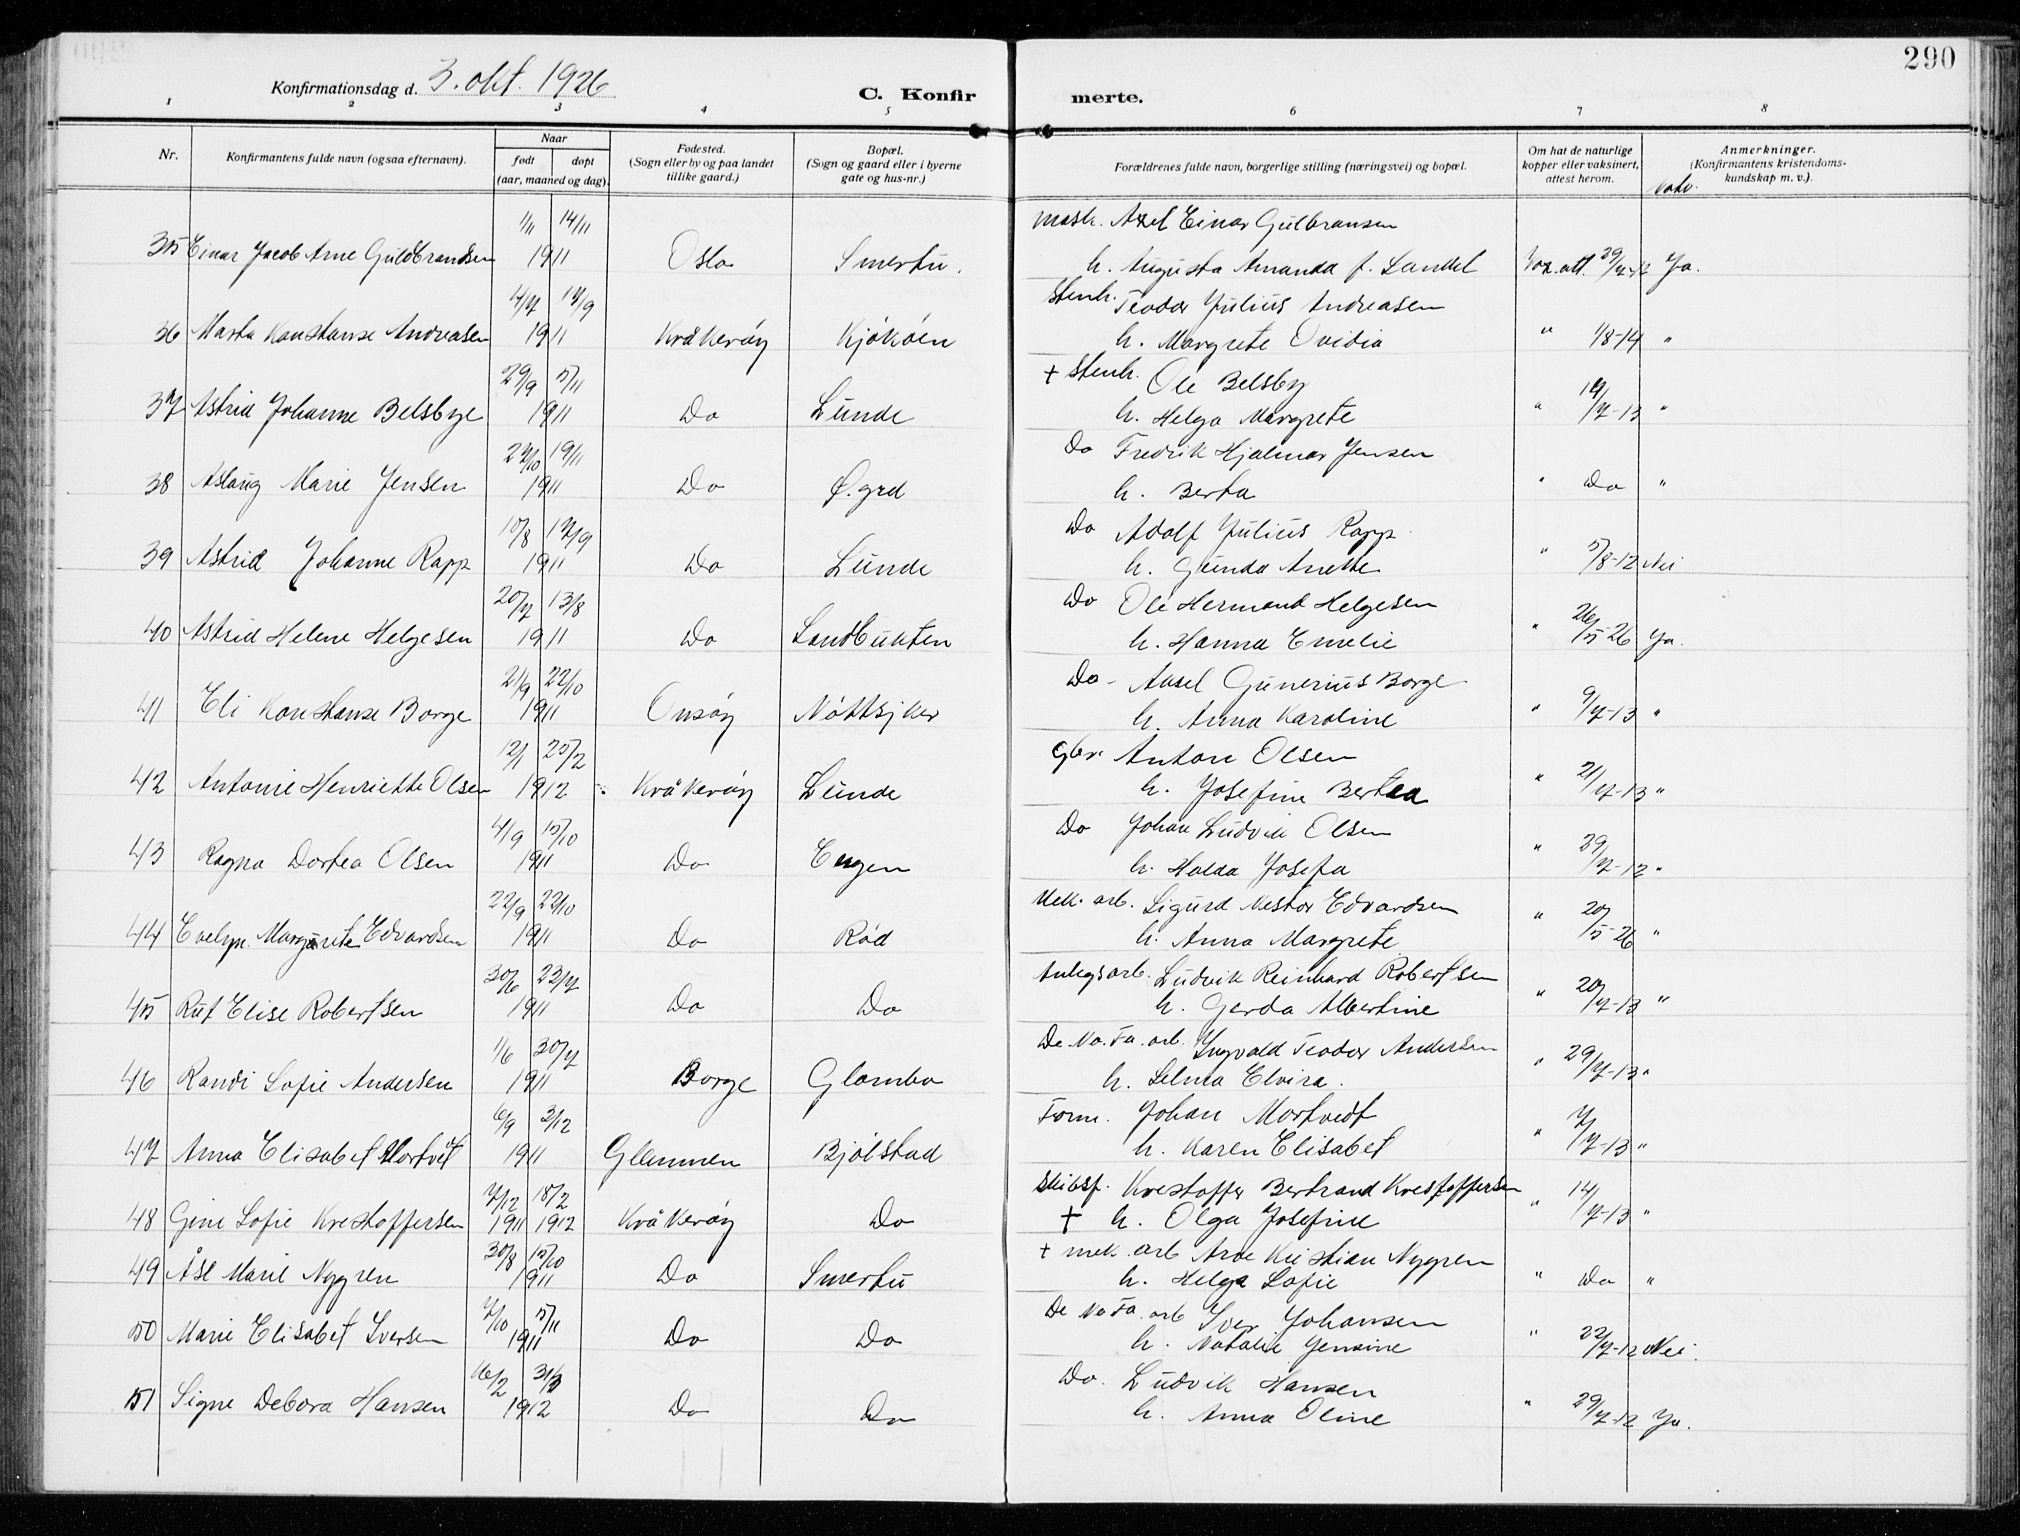 290
Konfirmationsdag d. 3. okt. 1926
C. Konfirmerte.
1 2 3 4 5 6 7 8
Nr. Konfirmantens fulde navn (ogsaa efternavn). Naar født døpt (aar, maaned og dag). Fødested. (Sogn eller by og paa landet tillike gaard.) Bopæl. (Sogn og gaard eller i byerne gate og hus-nr.) Forældrenes fulde navn, borgerlige stilling (næringsvei) og bopæl. Om hat de naturlige kopper eller vaksinert, attest herom. Anmerkninger. (Konfirmantens kristendomskundskap m. v.).
1/11 14/11 Mask. Axel Einar Gulbransen
35 Einar Jacob Arne Guldbrandsen 1911 Oslo Smertu. h. Augusta Amanda f. Sandel Vax. att. 29/7-12 Ja.
4/7 17/9 Stenh. Teodor Julius Andreasen
36 Marta Konstanse Andreasen 1911 Kråkerøy Kjøkøen h. Margrete Ovidia " 1/8-14 "
29/9 5/11 + Stenh. Ole Belsby
37 Astrid Johanne Belsbye 1911 Do Lunde h. Helga Margrete " 14/7-13 "
27/10 19/11 Do Fredrik Hjalmar Jensen
38 Aslaug Marie Jensen 1911 Do Ø. grd h. Berta " Do "
10/8 17/9 Do Adolf Julius Rapp.
39 Astrid Johanne Rapp 1911 Do Lunde h. Gunda Anette " 5/8-12 Nei
20/7 13/8 Do Ole Hermand Helgesen
40 Astrid Helene Helgesen 1911 Do Sandbukten h. Hanna Emelie " 26/5-26 Ja.
21/9 22/10 Do - Aksel Gunerius Borge
41 Eli Konstanse Borge 1911 Onsøy Nøttsjker h. Anna Karoline " 9/7-13 "
12/1 25/2 Gbr. Anton Olsen
42 Antonie Henriette Olsen 1912 Kråkerøy Lunde h. Josefine Bertea " 21/7-13 "
4/9 15/10 Do Johan Ludvik Olsen
43 Ragna Dortea Olsen 1911 Do Engen h. Halda Josefa " 29/7-12 "
22/9 22/10 Mek. arb. Sigurd Nestor Edvardsen
44 Evelyn Margrete Edvardsen 1911 Do Rød h. Anna Margrete " 20/5-26 "
30/6 23/7 Anlegsarb. Ludvik Reinhard Robertsen
45 Rut Elise Robertsen 1911 Do Do h. Gerda Albertine " 20/7-13 "
1/6 30/7 De No. Fa. arb. Yngvald Teodor Andersen
46 Randi Sofie Andersen 1911 Borge Glombo h. Selma Elvira. " 29/7-13 "
6/9 3/12 Form. Johan Mortvedt
47 Anna Elisabet Mortvet 1911 Glemmen Bjølstad h. Karen Elisabet " 7/7-13 "
7/12 18/2 Skibsf. Krestoffer Bertrand Krestoffersen
48 Gine Sofie Krestoffersen 1911 1912 Kråkerøy Do + h. Olga Josefine " 14/7-13 "
30/8 15/10 + mek. arb Arve Kristian Nygren
49 Åse Marie Nygren 1911 Do Smertu h. Helga Sofie " Do "
7/10 5/11 De No Fa. arb Iver Johansen
50 Marie Elisabet Iversen 1911 Do Do h. Natalie Jensine " 22/7-12 Nei.
16/2 31/3 Do. Ludvik Hansen
51 Signe Debora Hansen 1912 Do Do h. Anna Oline " 29/7-12 Ja.